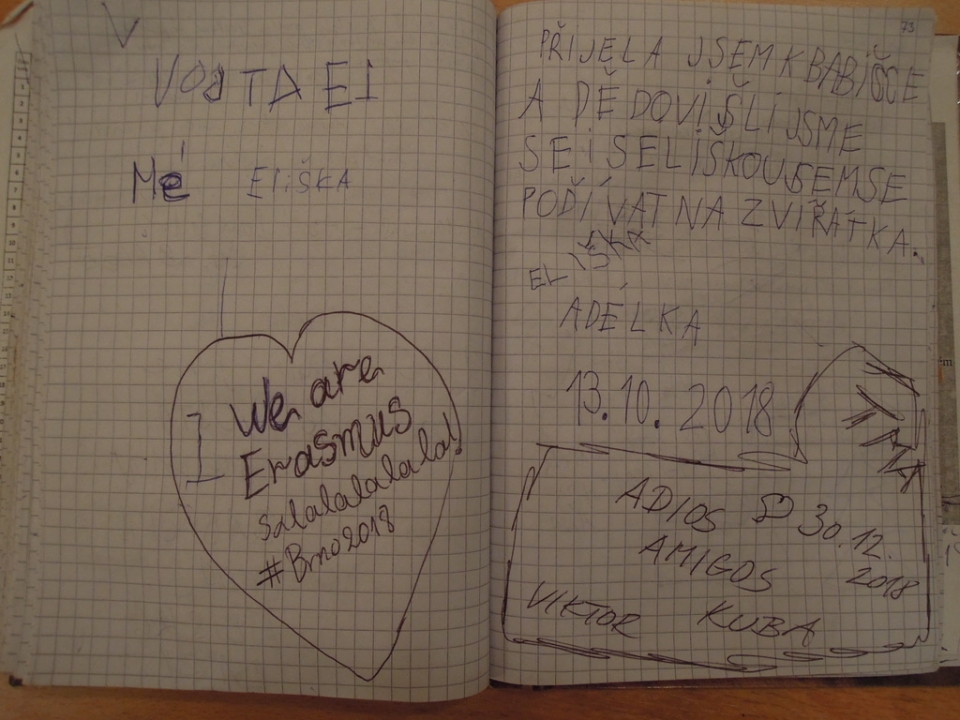 V
VOJTA EI
Mé ELIŠKA
I We are
Erasmus
salalalalala!
#Brno2018
73
PŘIJELA JSEM K BABIČCE
A DĚDOVI ŠLI JSME
SE I S ELIŠKOU SEM SE
PODÍVAT NA ZVÍŘÁTKA.
ELIŠKA
ADÉLKA
13.10.2018
ADIOS 30.12.
AMIGOS 2018
VIKTOR KUBA